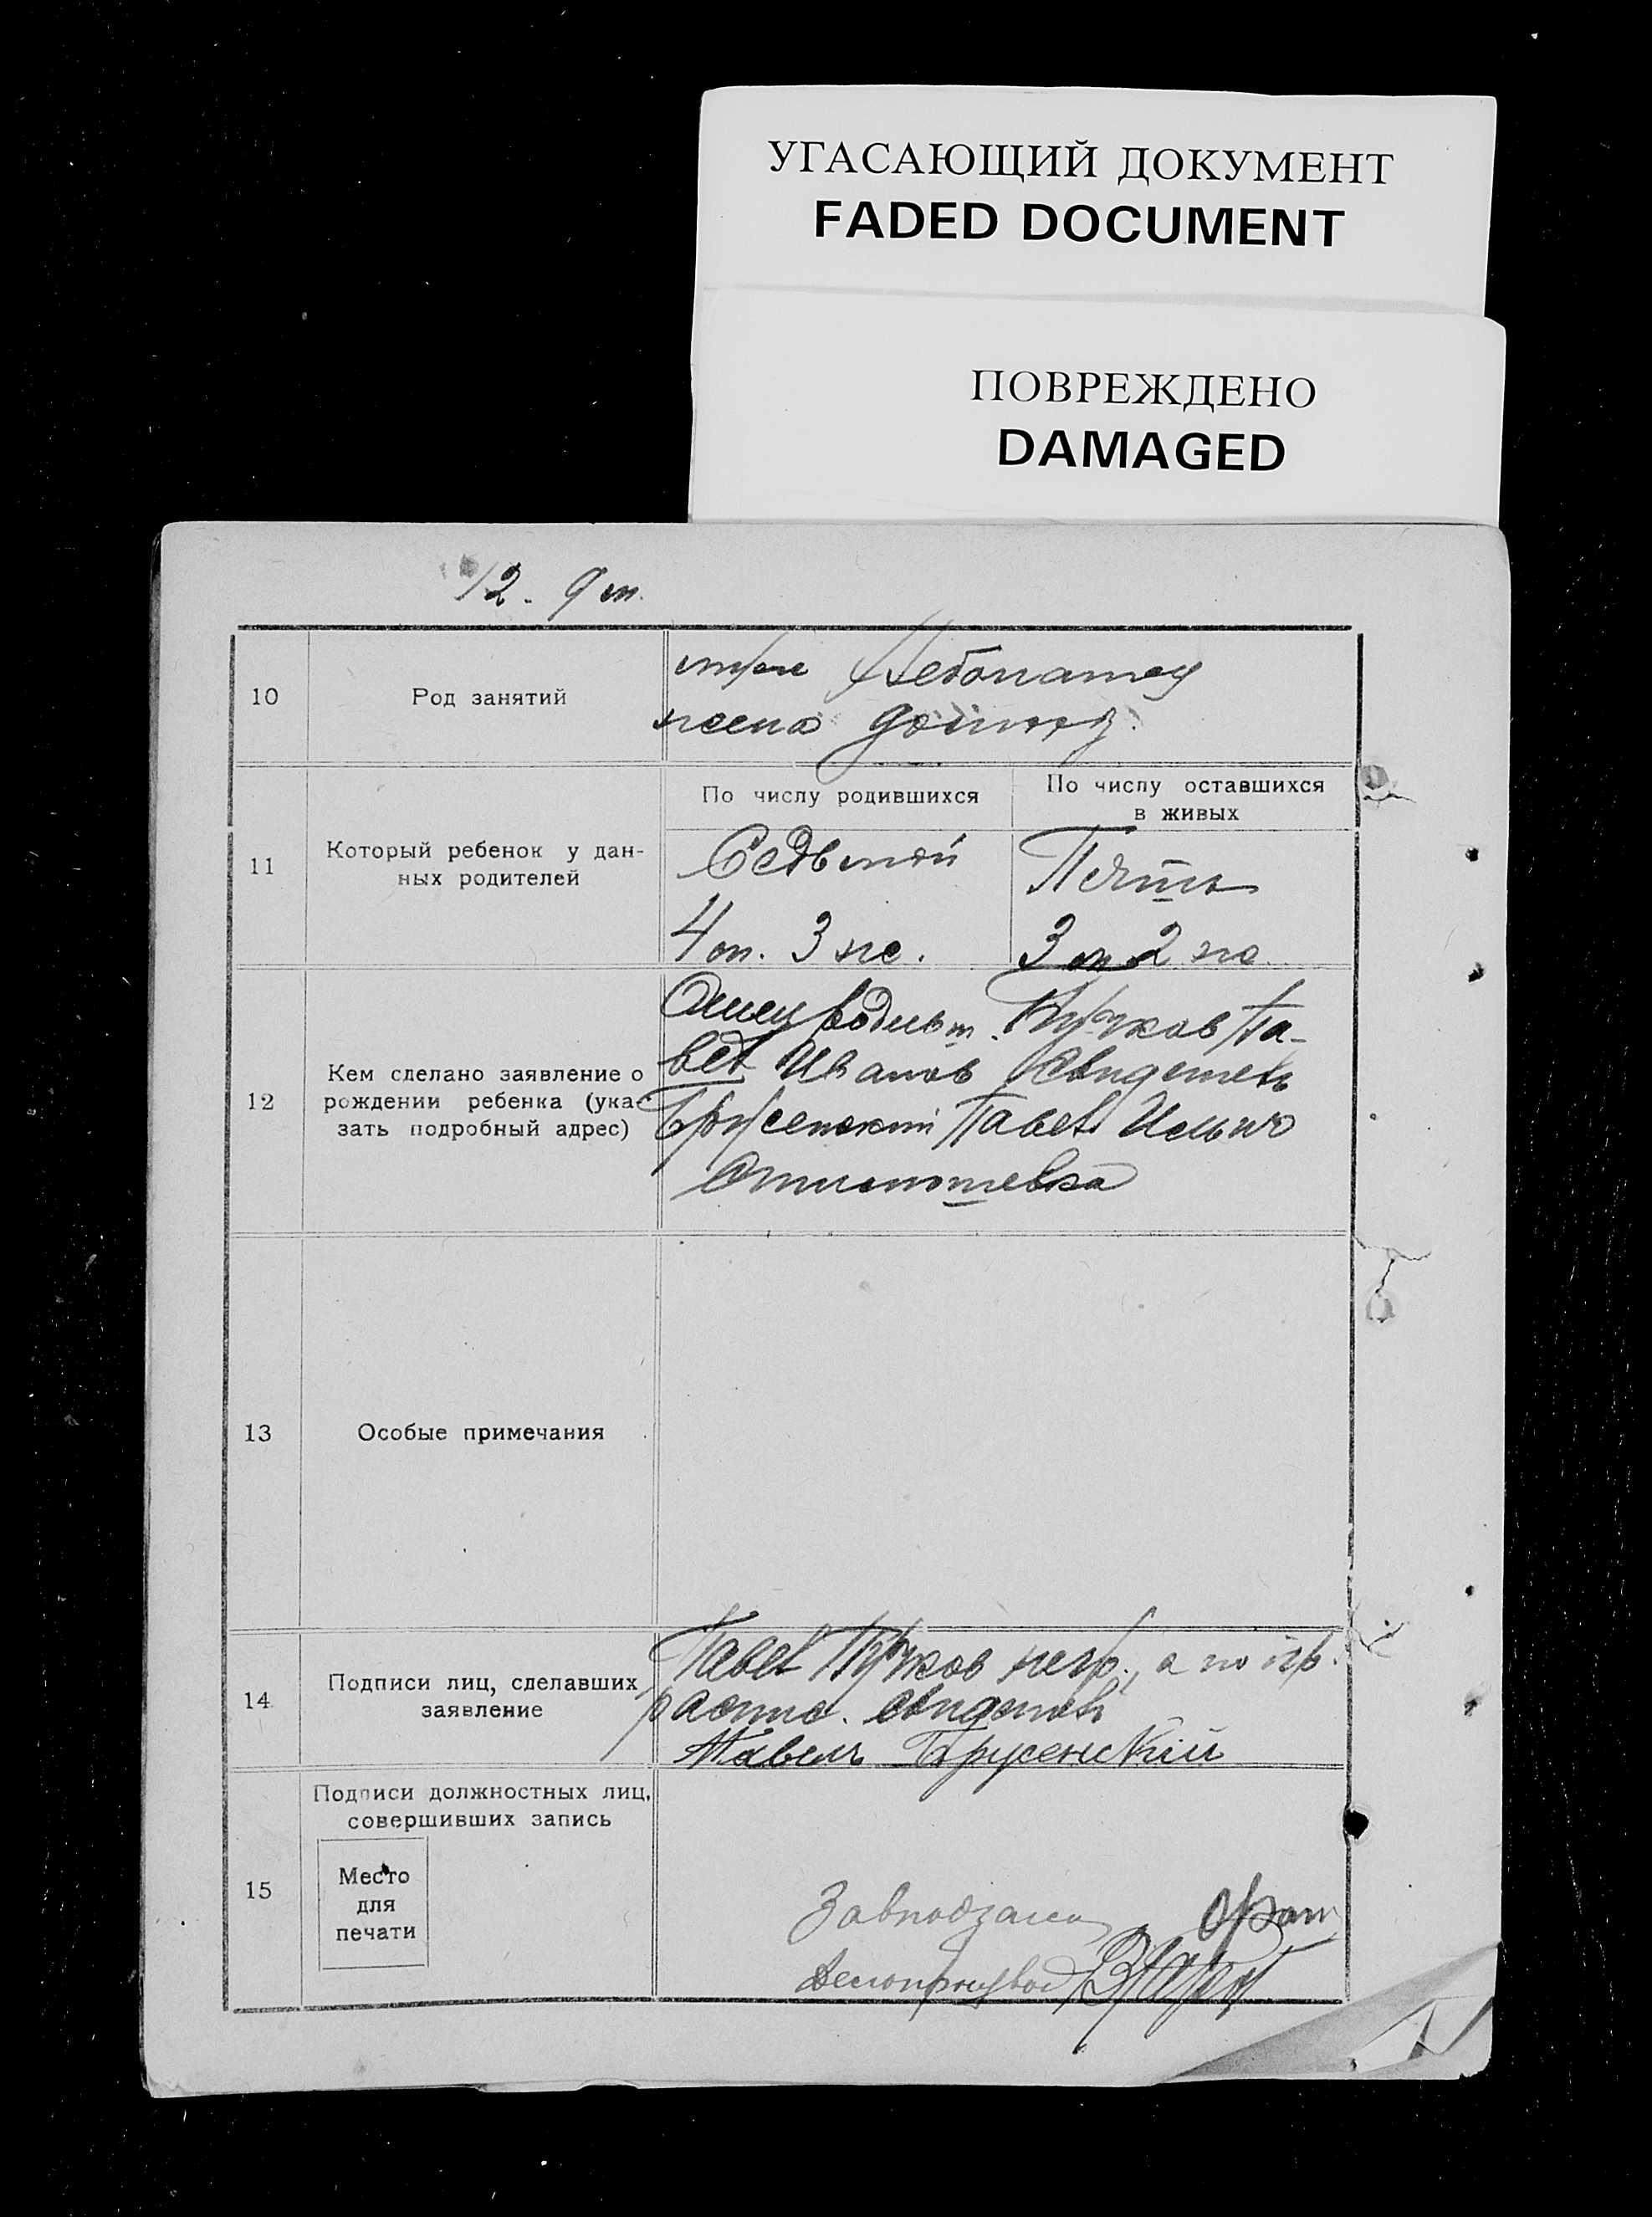 УГАСАЮЩИЙ ДОКУМЕНТ
FADED DOCUMENT
ПОВРЕЖДЕНО
DAMAGED
12. 9 m.
10
Род занятий
муж Хлебопашец
жена домохоз.
11
Который ребенок у дан-
ных родителей
По числу родившихся
По числу оставшихся
в живых
Седьмой
Пять
4 м. 3 ж.
3 м 2 ж
12
Кем сделано заявление о
рождении ребенка (ука-
зать подробный адрес)
Отец Па-
вел Иванов Свидетель
Брусенский Павел Ильич
13
Особые примечания
14
Подписи лиц, сделавших
заявление
Павел негр., а по
распис. свидетель
Павелъ Брусенский
15
Подписи должностных лиц,
совершивших запись
Место
для
печати
Завподзагса
Делопроизвод